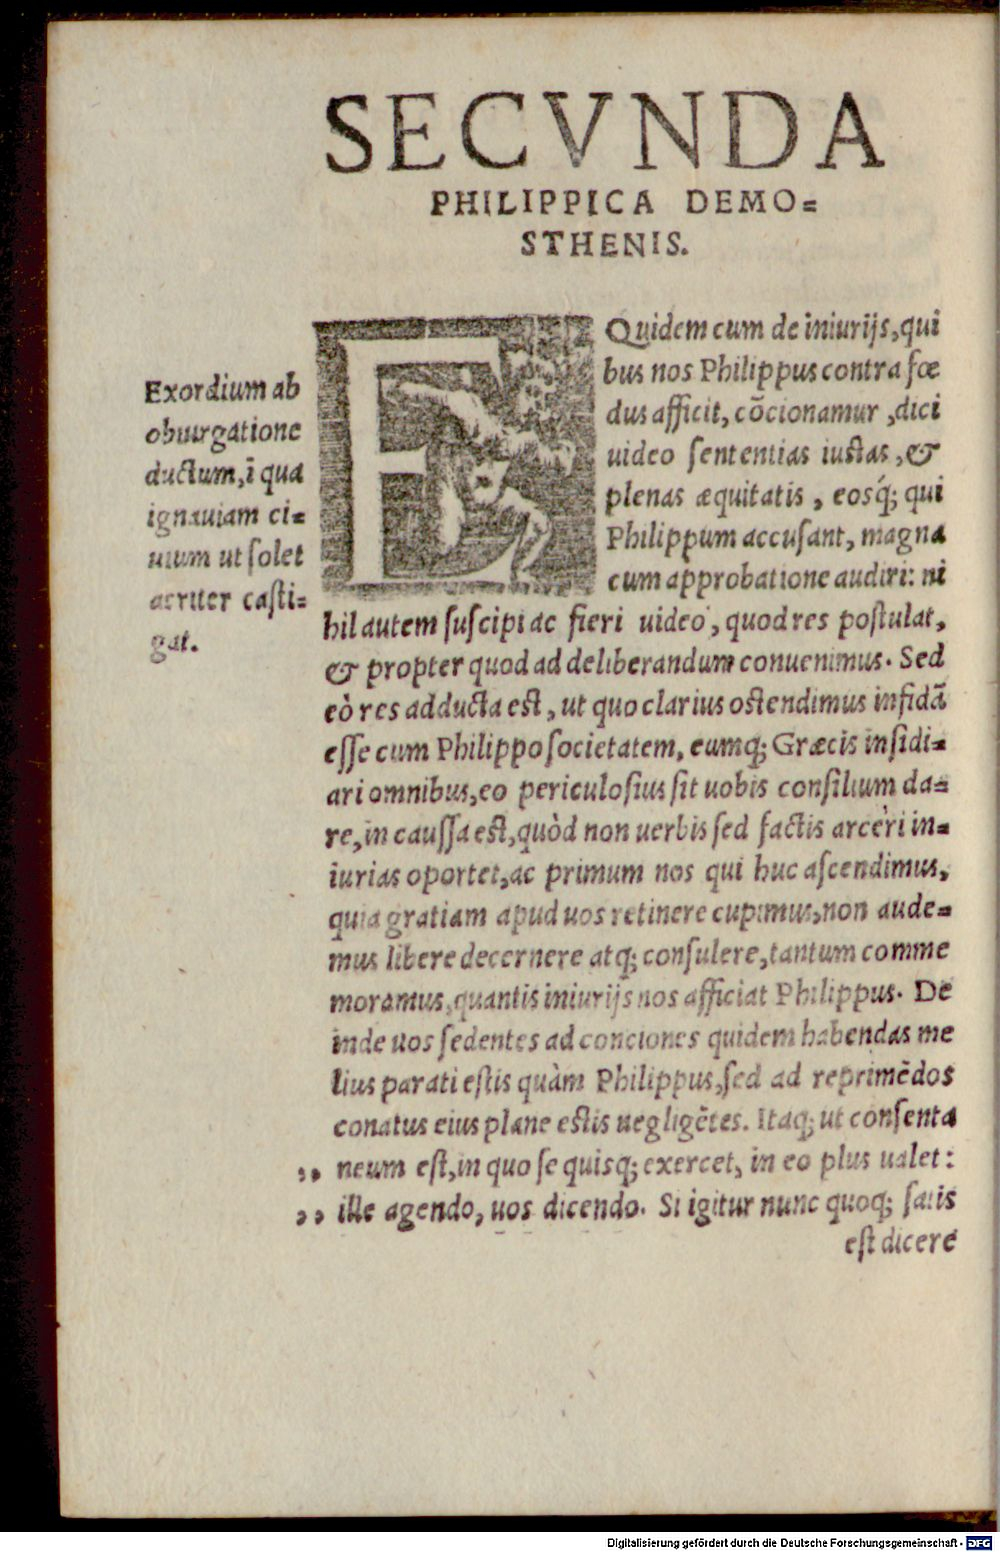 SECVNDA
PHILIPPICA DEMO=
STHENIS.
EQuidem cum de iniurijs, qui
bus nos Philippus contra fœ
dus afficit, cõcionamur, dici
uideo sententias iustas, &
plenas æquitatis, eosq́; qui
Philippum accusant, magna
cum approbatione audiri: ni
hil autem suscipi ac fieri uideo, quod res postulat,
& propter quod ad deliberandum conuenimus. Sed
eò res adducta est, ut quo clarius ostendimus infidã
esse cum Philippo societatem, eumq; Græcis insidi=
ari omnibus, eo periculosius sit uobis consilium da=
re, in caussa est, quòd non uerbis sed factis arceri in=
iurias oportet, ac primum nos qui huc ascendimus,
quia gratiam apud uos retinere cupimus, non aude=
mus libere decernere atq; consulere, tantum comme
moramus, quantis iniurijs nos afficiat Philippus. De
inde uos sedentes ad conciones quidem habendas me
lius parati estis quàm Philippus, sed ad reprimẽdos
conatus eius plane estis negligẽtes. Itaq; ut consenta
,, neum est, in quo se quisq; exercet, in eo plus ualet:
,, ille agendo, uos dicendo. Si igitur nunc quoq; satis
est dicere
Exordium ab
obiurgatione
ductum, ĩ qua
ignauiam ci=
uium ut solet
acriter casti=
gat.
Digitalisierung gefördert durch die Deutsche Forschungsgemeinschaft - DFG